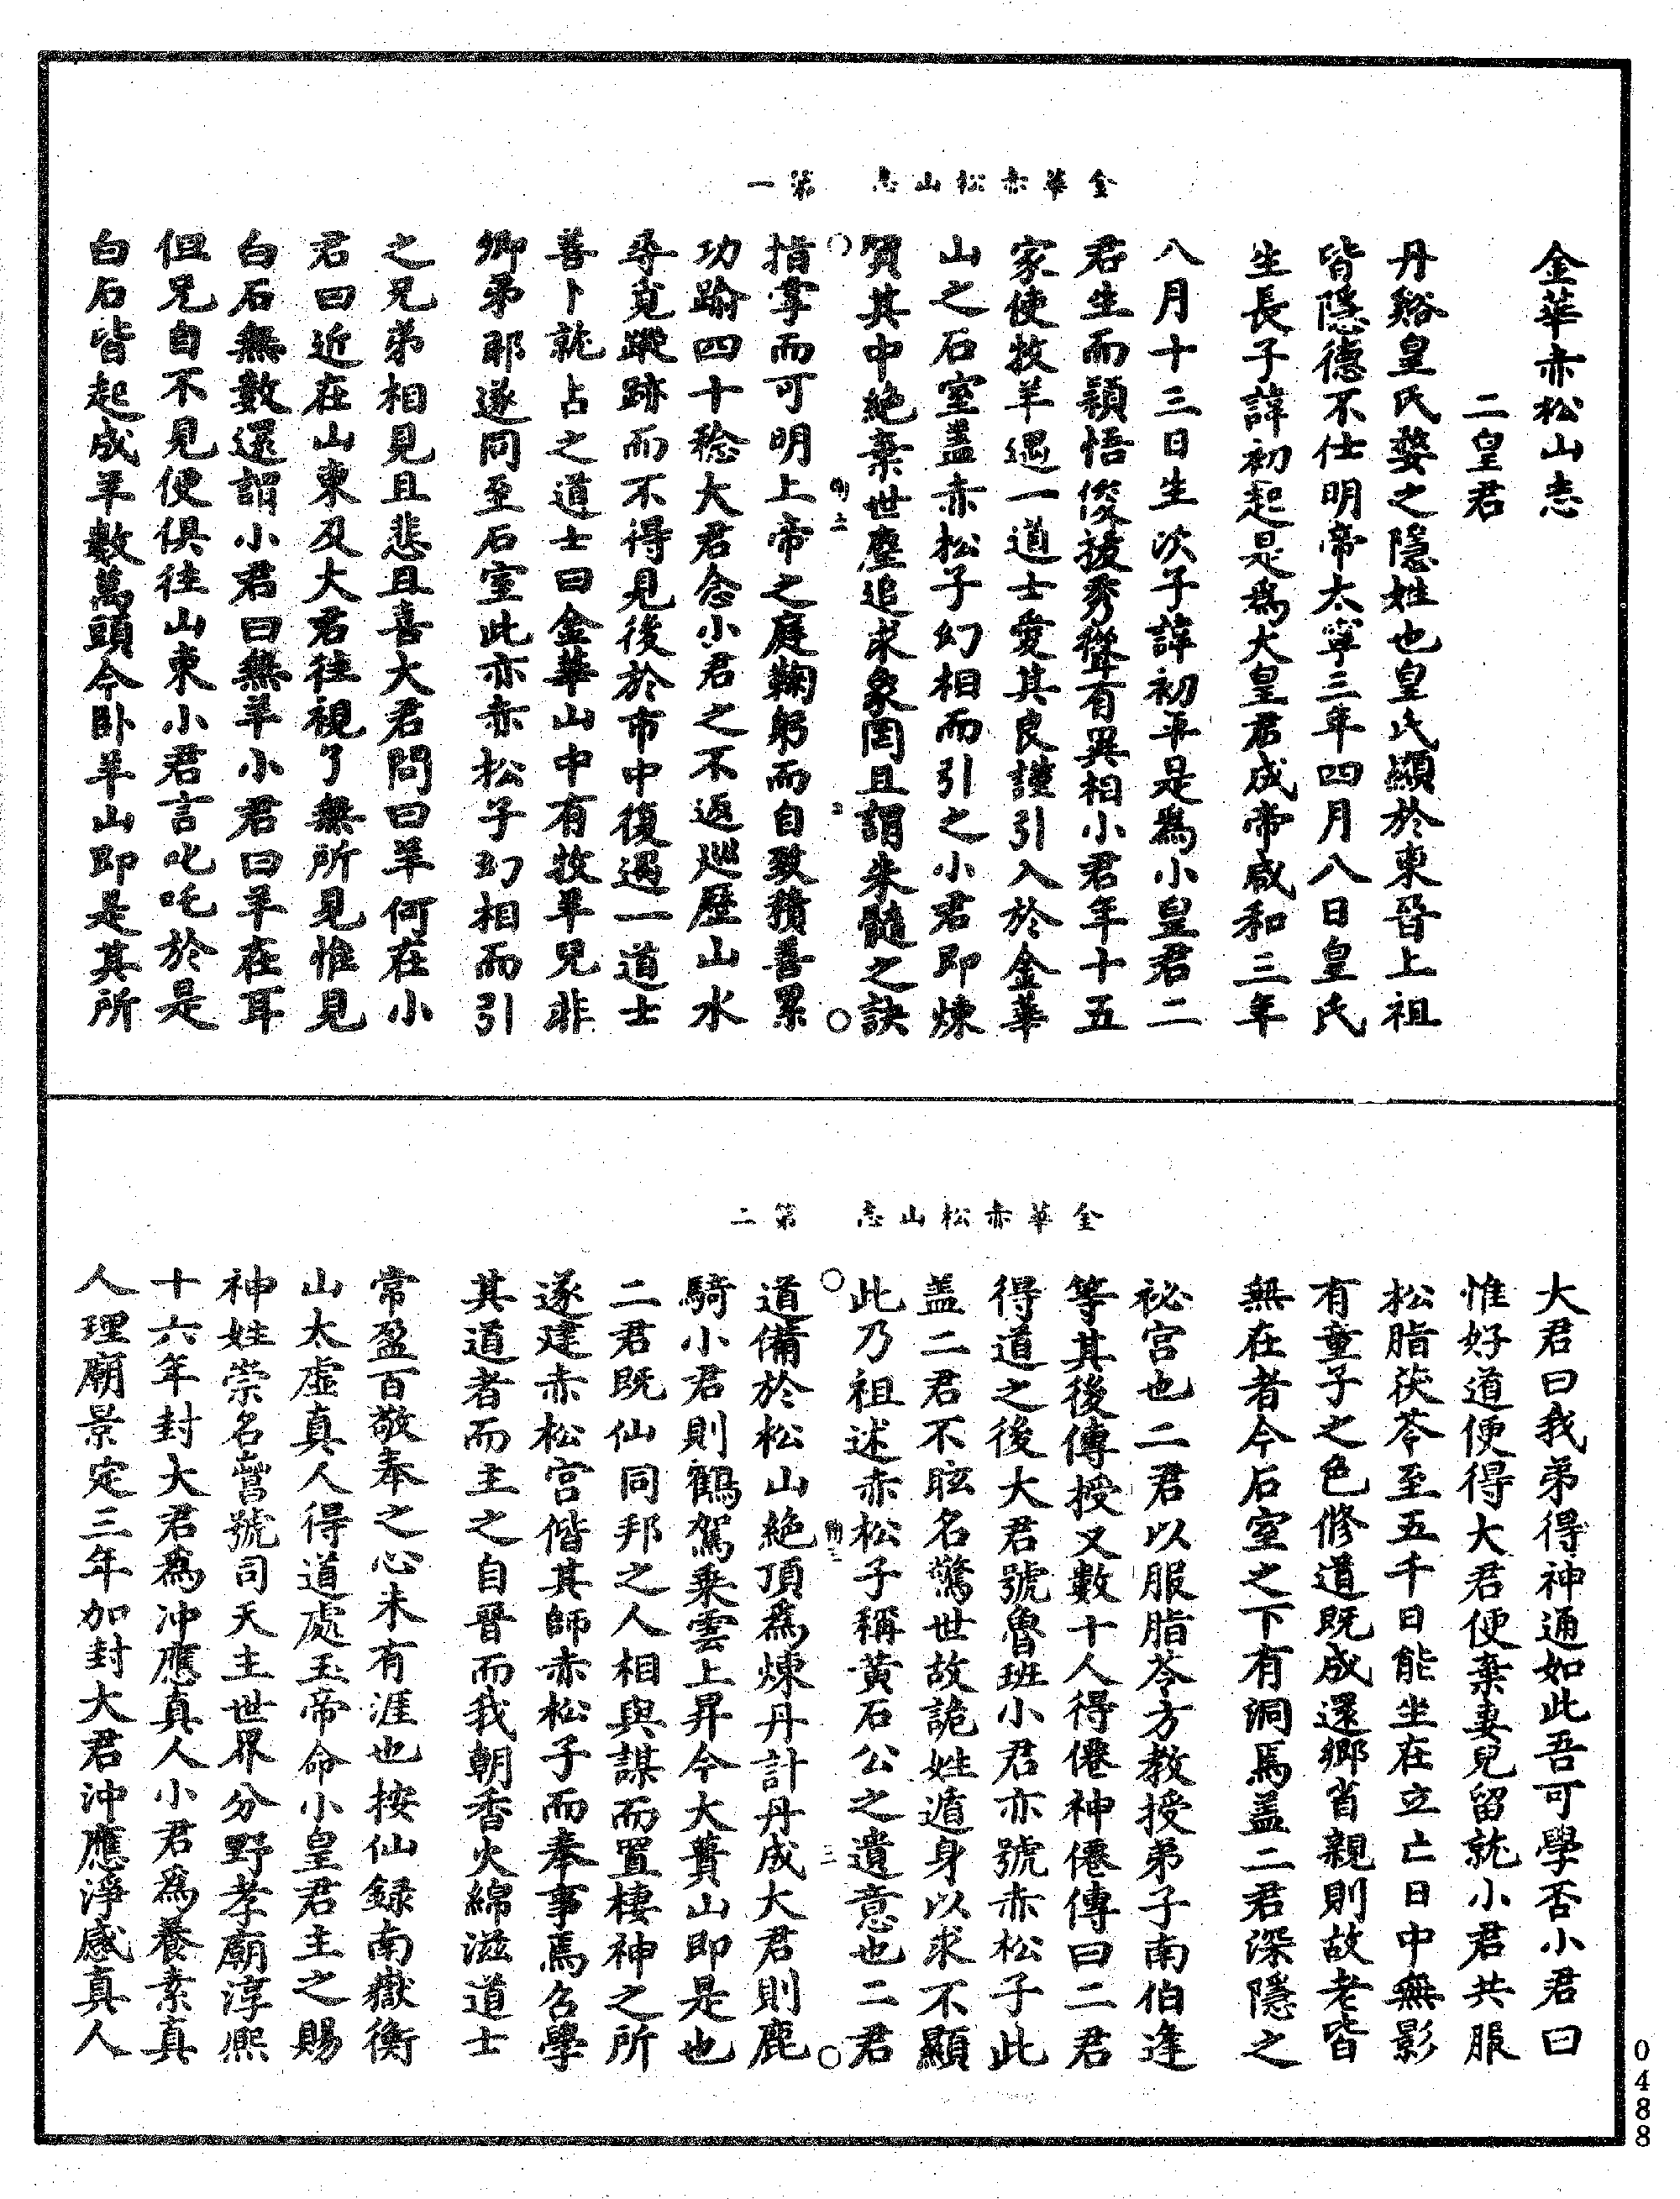 金華赤松山志　第一
金華赤松山志
二皇君
丹谿皇氏婺之隱姓也皇氏顯於東晉上祖
皆隱德不仕明帝太寧三年四月八日皇氏
生長子諱初起是爲大皇君成帝咸和三年
八月十三日生次子諱初平是爲小皇君二
君生而穎悟俊拔秀聳有異相小君年十五
家使牧羊遇一道士愛其良謹引入於金華
山之石室盖赤松子幻相而引之小君即煉
質其中絶棄世塵追求象罔且謂朱髓之訣
指掌而可明上帝之庭鞠躬而自致積善累
功踰四十稔大君念小君之不返廵歷山水
尋覓蹤跡而不得見後於市中復遇一道士
善卜就占之道士曰金華山中有牧羊兒非
卿弟耶遂同至石室此亦赤松子幻相而引
之兄弟相見且悲且喜大君問曰羊何在小
君曰近在山東及大君往視了無所見惟見
白石無數還謂小君曰無羊小君曰羊在耳
但兄自不見便俱往山東小君言叱吒於是
白石皆起成羊數萬頭今卧羊山即是其所
金華赤松山志　第二
大君曰我弟得神通如此吾可學否小君曰
惟好道便得大君便棄妻兒留就小君共服
松脂茯苓至五千日能坐在立亡日中無影
有童子之色修道既成還鄉省親則故老皆
無在者今石室之下有洞焉盖二君深隱之
祕宫也二君以服脂苓方教授弟子南伯逢
等其後傳授又數十人得僊神僊傳曰二君
得道之後大君號魯班小君亦號赤松子此
盖二君不眩名驚世故詭姓遁身以求不顯
此乃祖述赤松子稱黄石公之遺意也二君
道備於松山絶頂爲煉丹計丹成大君則鹿
騎小君則鶴駕乘雲上昇今大蕢山即是也
二君既仙同邦之人相與謀而置棲神之所
遂建赤松宫偕其師赤松子而奉事焉召學
其道者而主之自晉而我朝香火綿滋道士
常盈百敬奉之心未有涯也按仙録南嶽衡
山太虛真人得道處玉帝命小皇君主之賜
神姓崇名嘗號司天主世界分野孝廟淳熙
十六年封大君爲冲應真人小君爲養素真
人理廟景定三年加封大君冲應淨感真人
0488